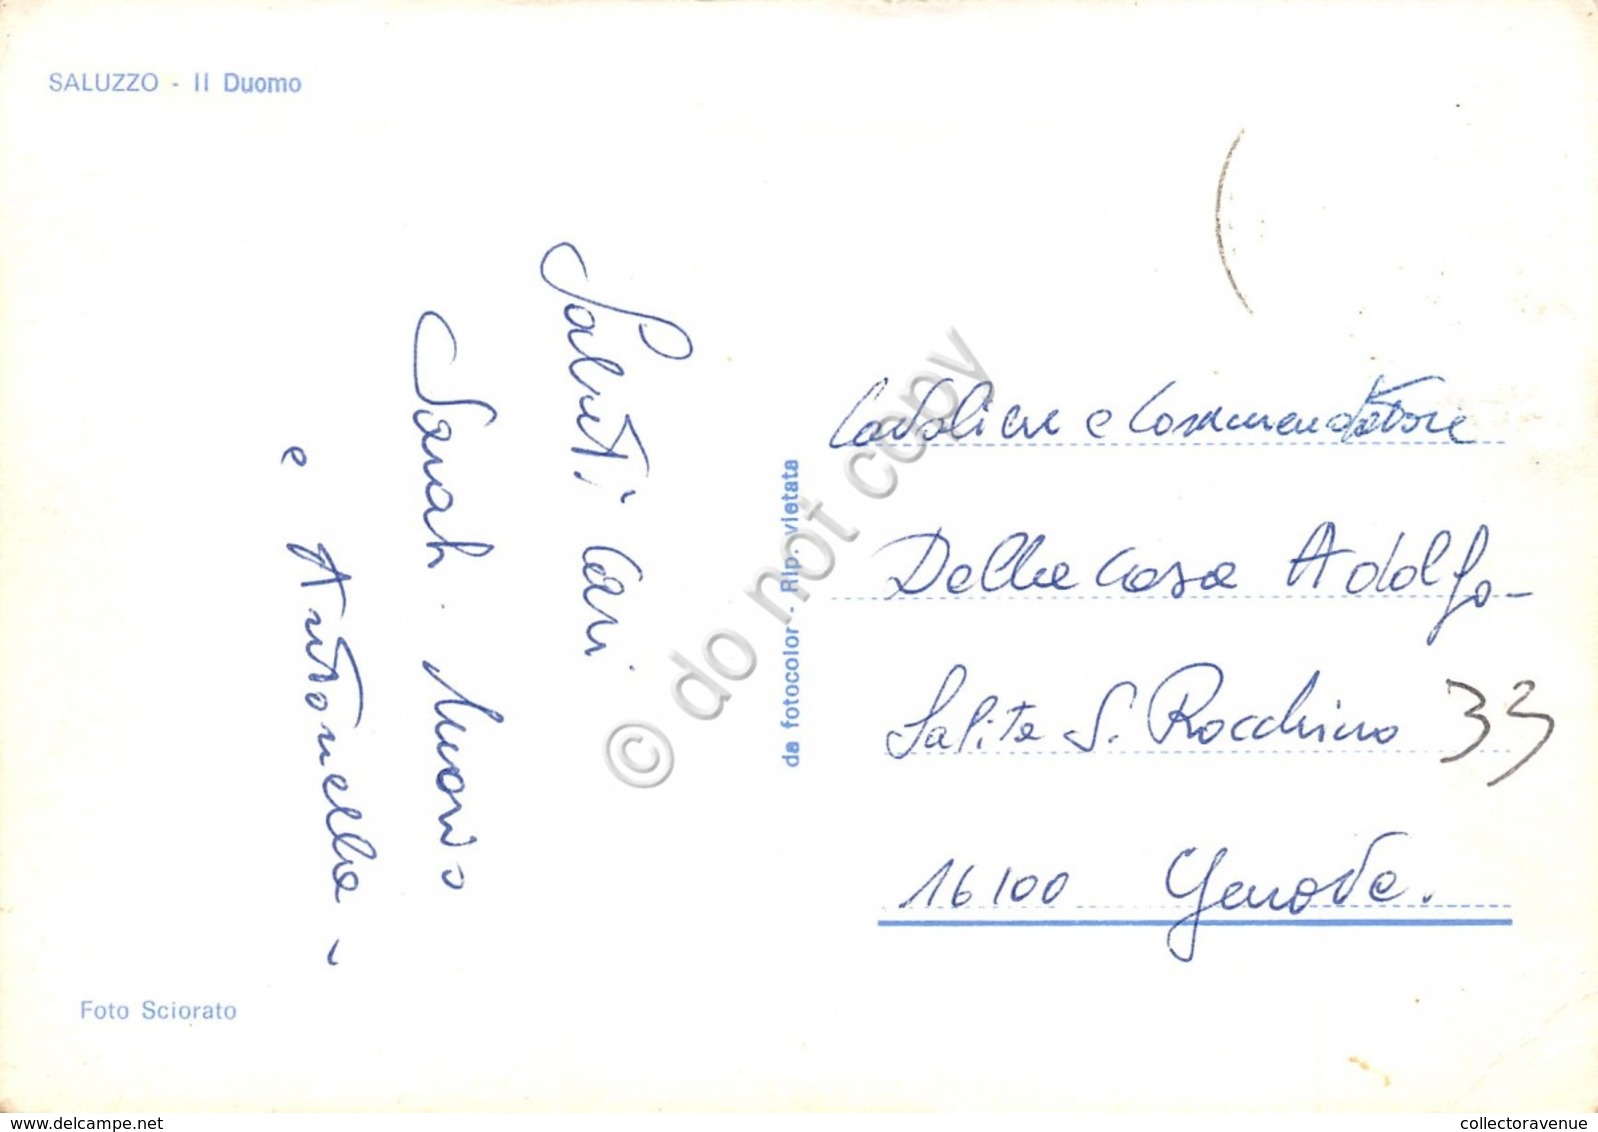 SALUZZO - Il Duomo
Saluti Cari
Sarah
e Antonella -
Foto Sciorato
da fotocolor - Rip. vietata
Cavaliere e Commendatore
Dellacasa Adolfo -
Salita S. Rocchino 33
16100 Genova.
© do not copy
collectoravenue